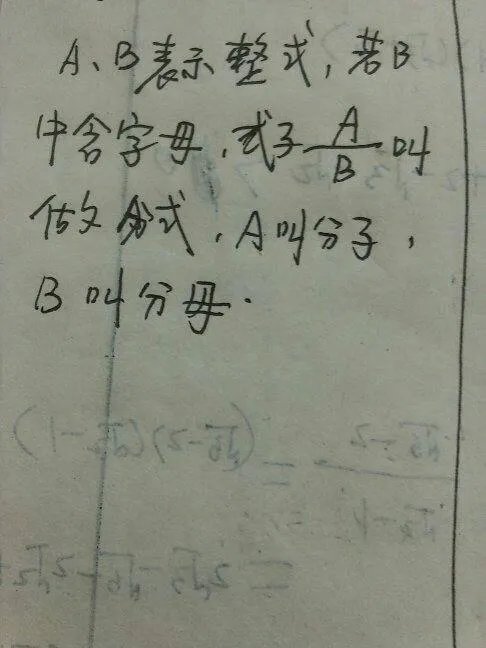 A、B表示整式，若B
中含字母，式子A/B叫
做分式，A叫分子，
B叫分母.